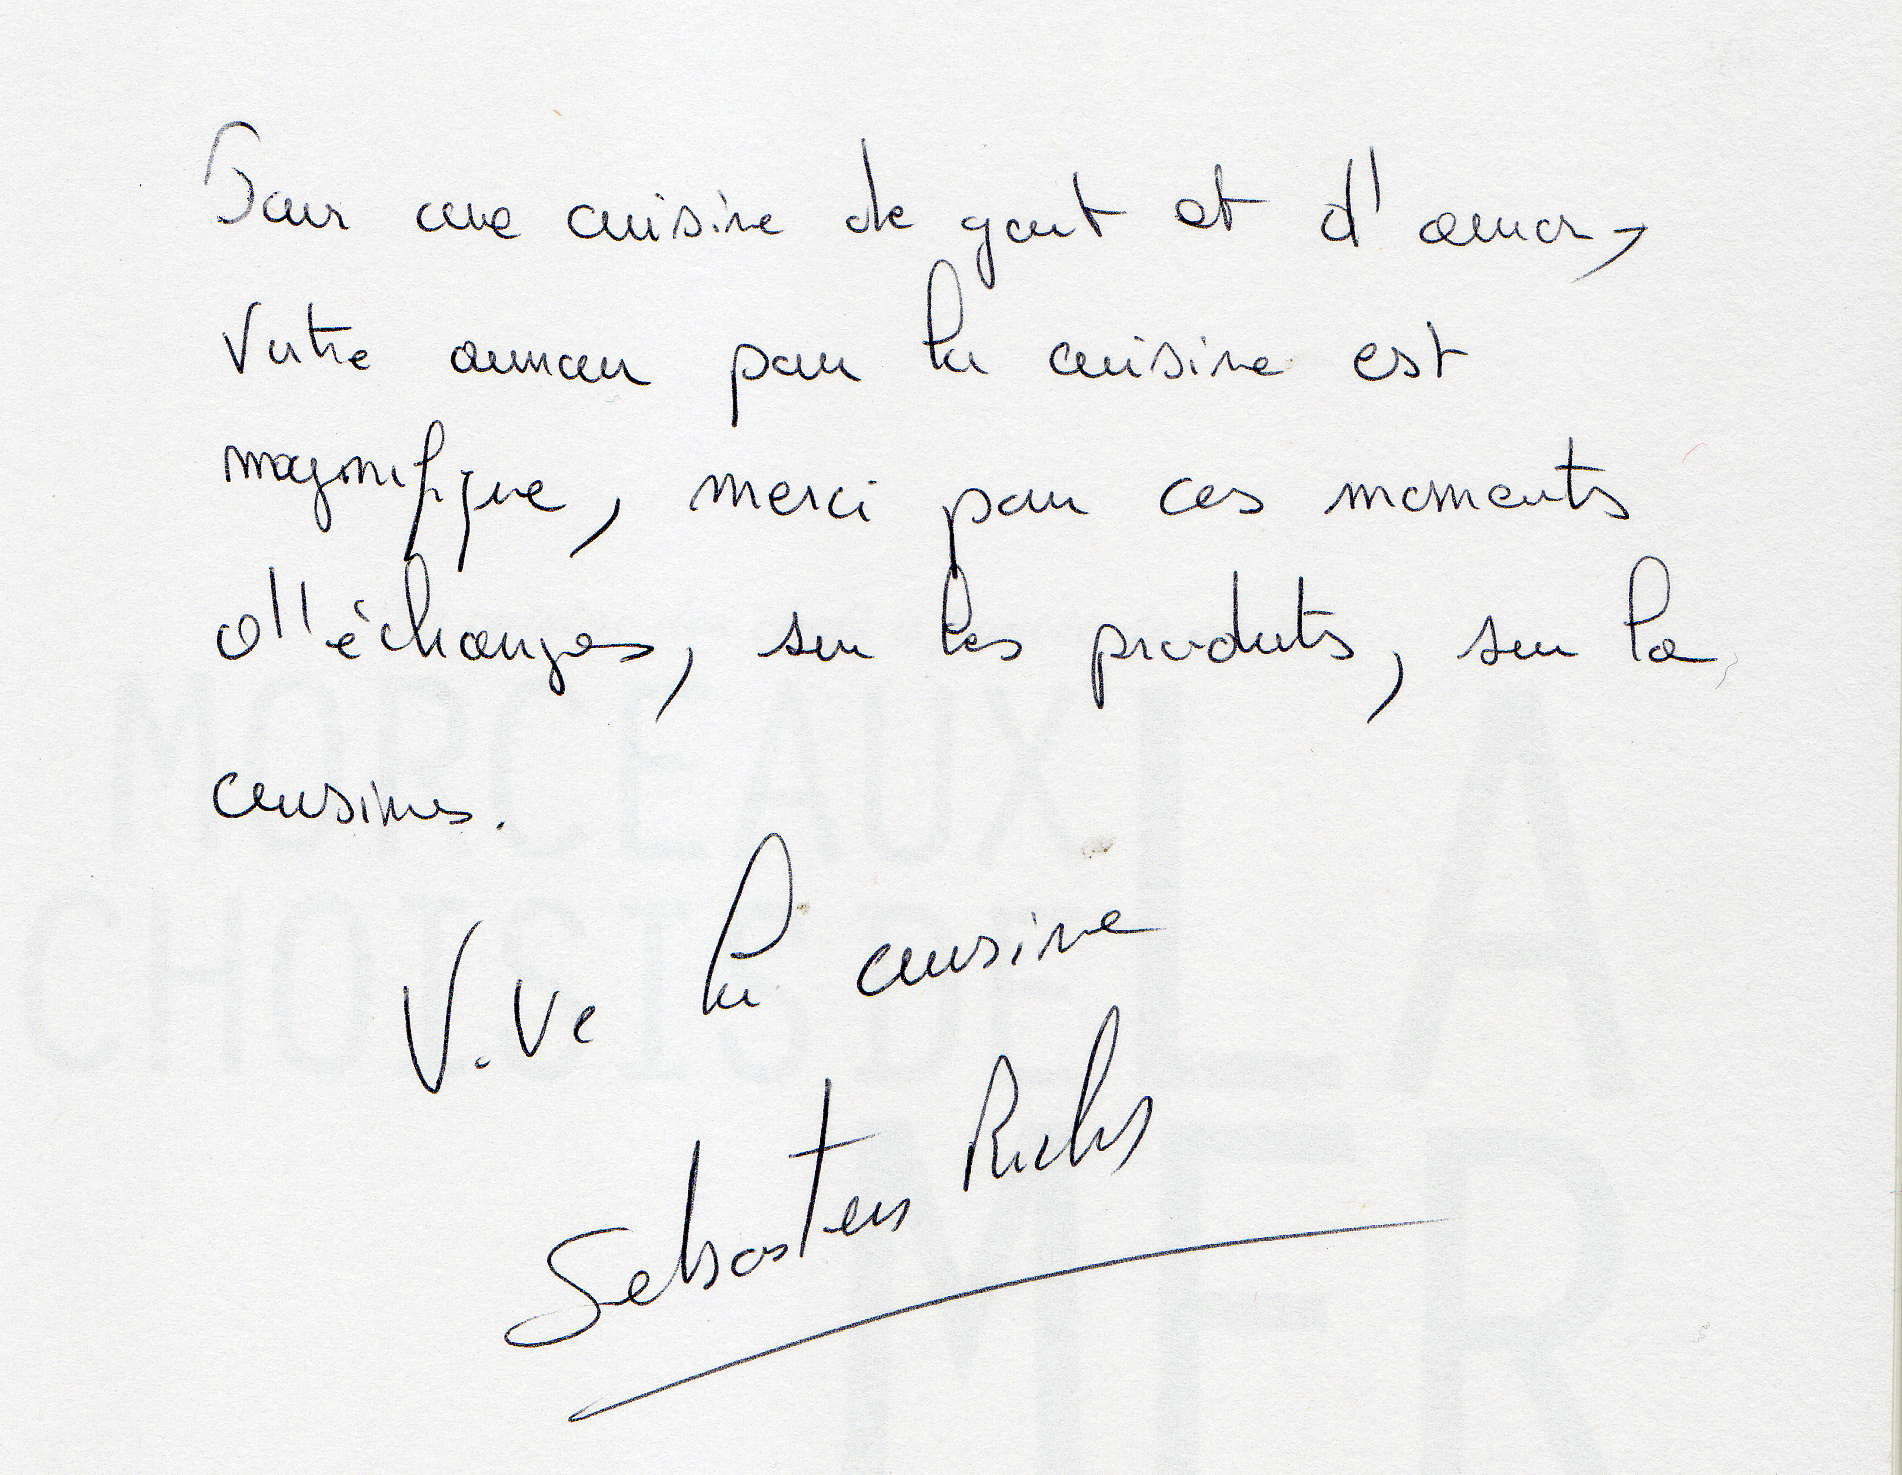 Pour une cuisine de gout et d'amour,
Votre amour pour la cuisine est
magnifique, merci pour ces moments
d'échanges, sur les produits, sur la
cuisines.
Vive la cuisine
Sebastien
MORCEAUX
LA
MER